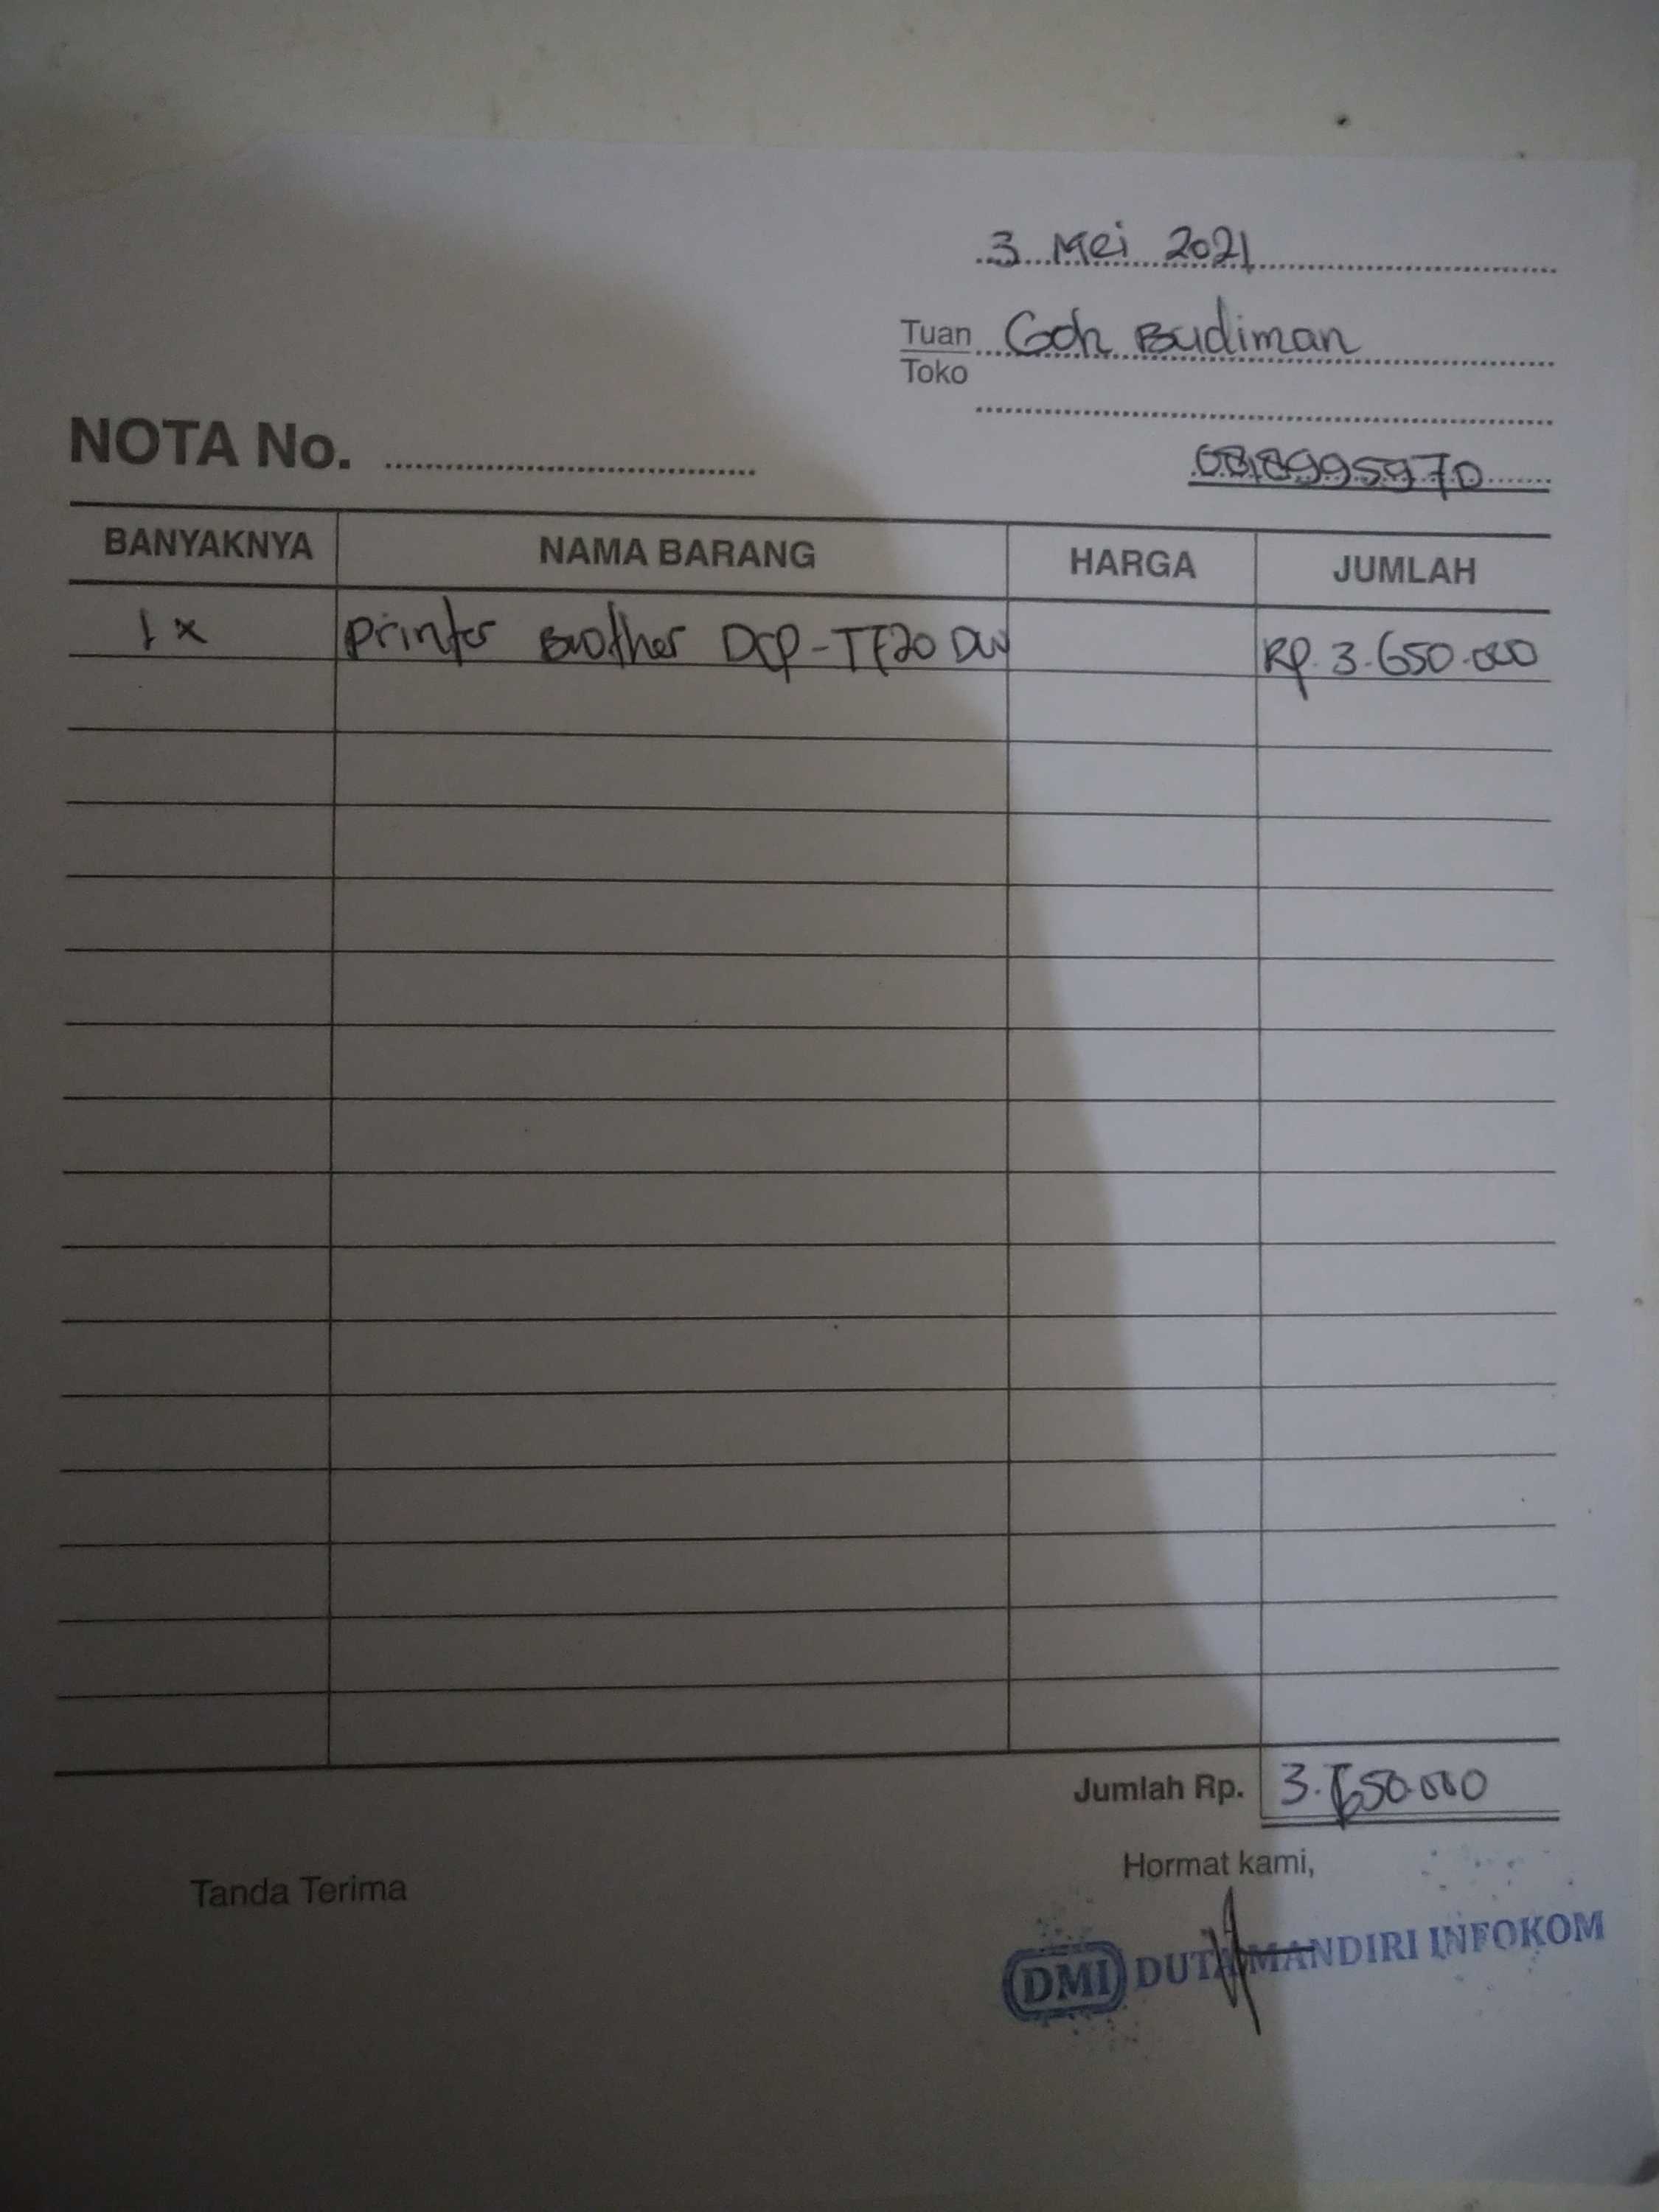 3 Mei 2021
Tuan Goh Budiman
Toko
NOTA No.
0818995970
BANYAKNYA NAMA BARANG HARGA JUMLAH
1x Printer Brother DCP-T720 DW Rp. 3.650.000
Jumlah Rp. 3.650.000
Tanda Terima Hormat kami,
DMI DUTA MANDIRI INFOKOM